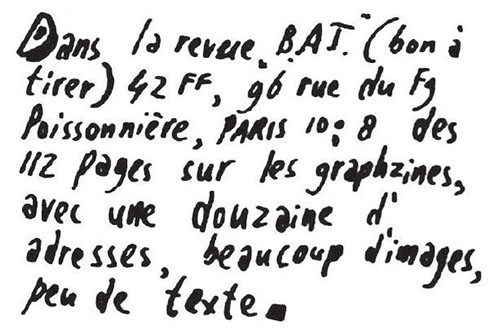 Dans la revue B.A.T. (bon à
tirer) 42 FF, 96 rue du Fg
Poissonnière, PARIS 10: 8 des
112 pages sur les graphzines,
avec une douzaine d'
adresses, beaucoup d'images,
peu de texte.